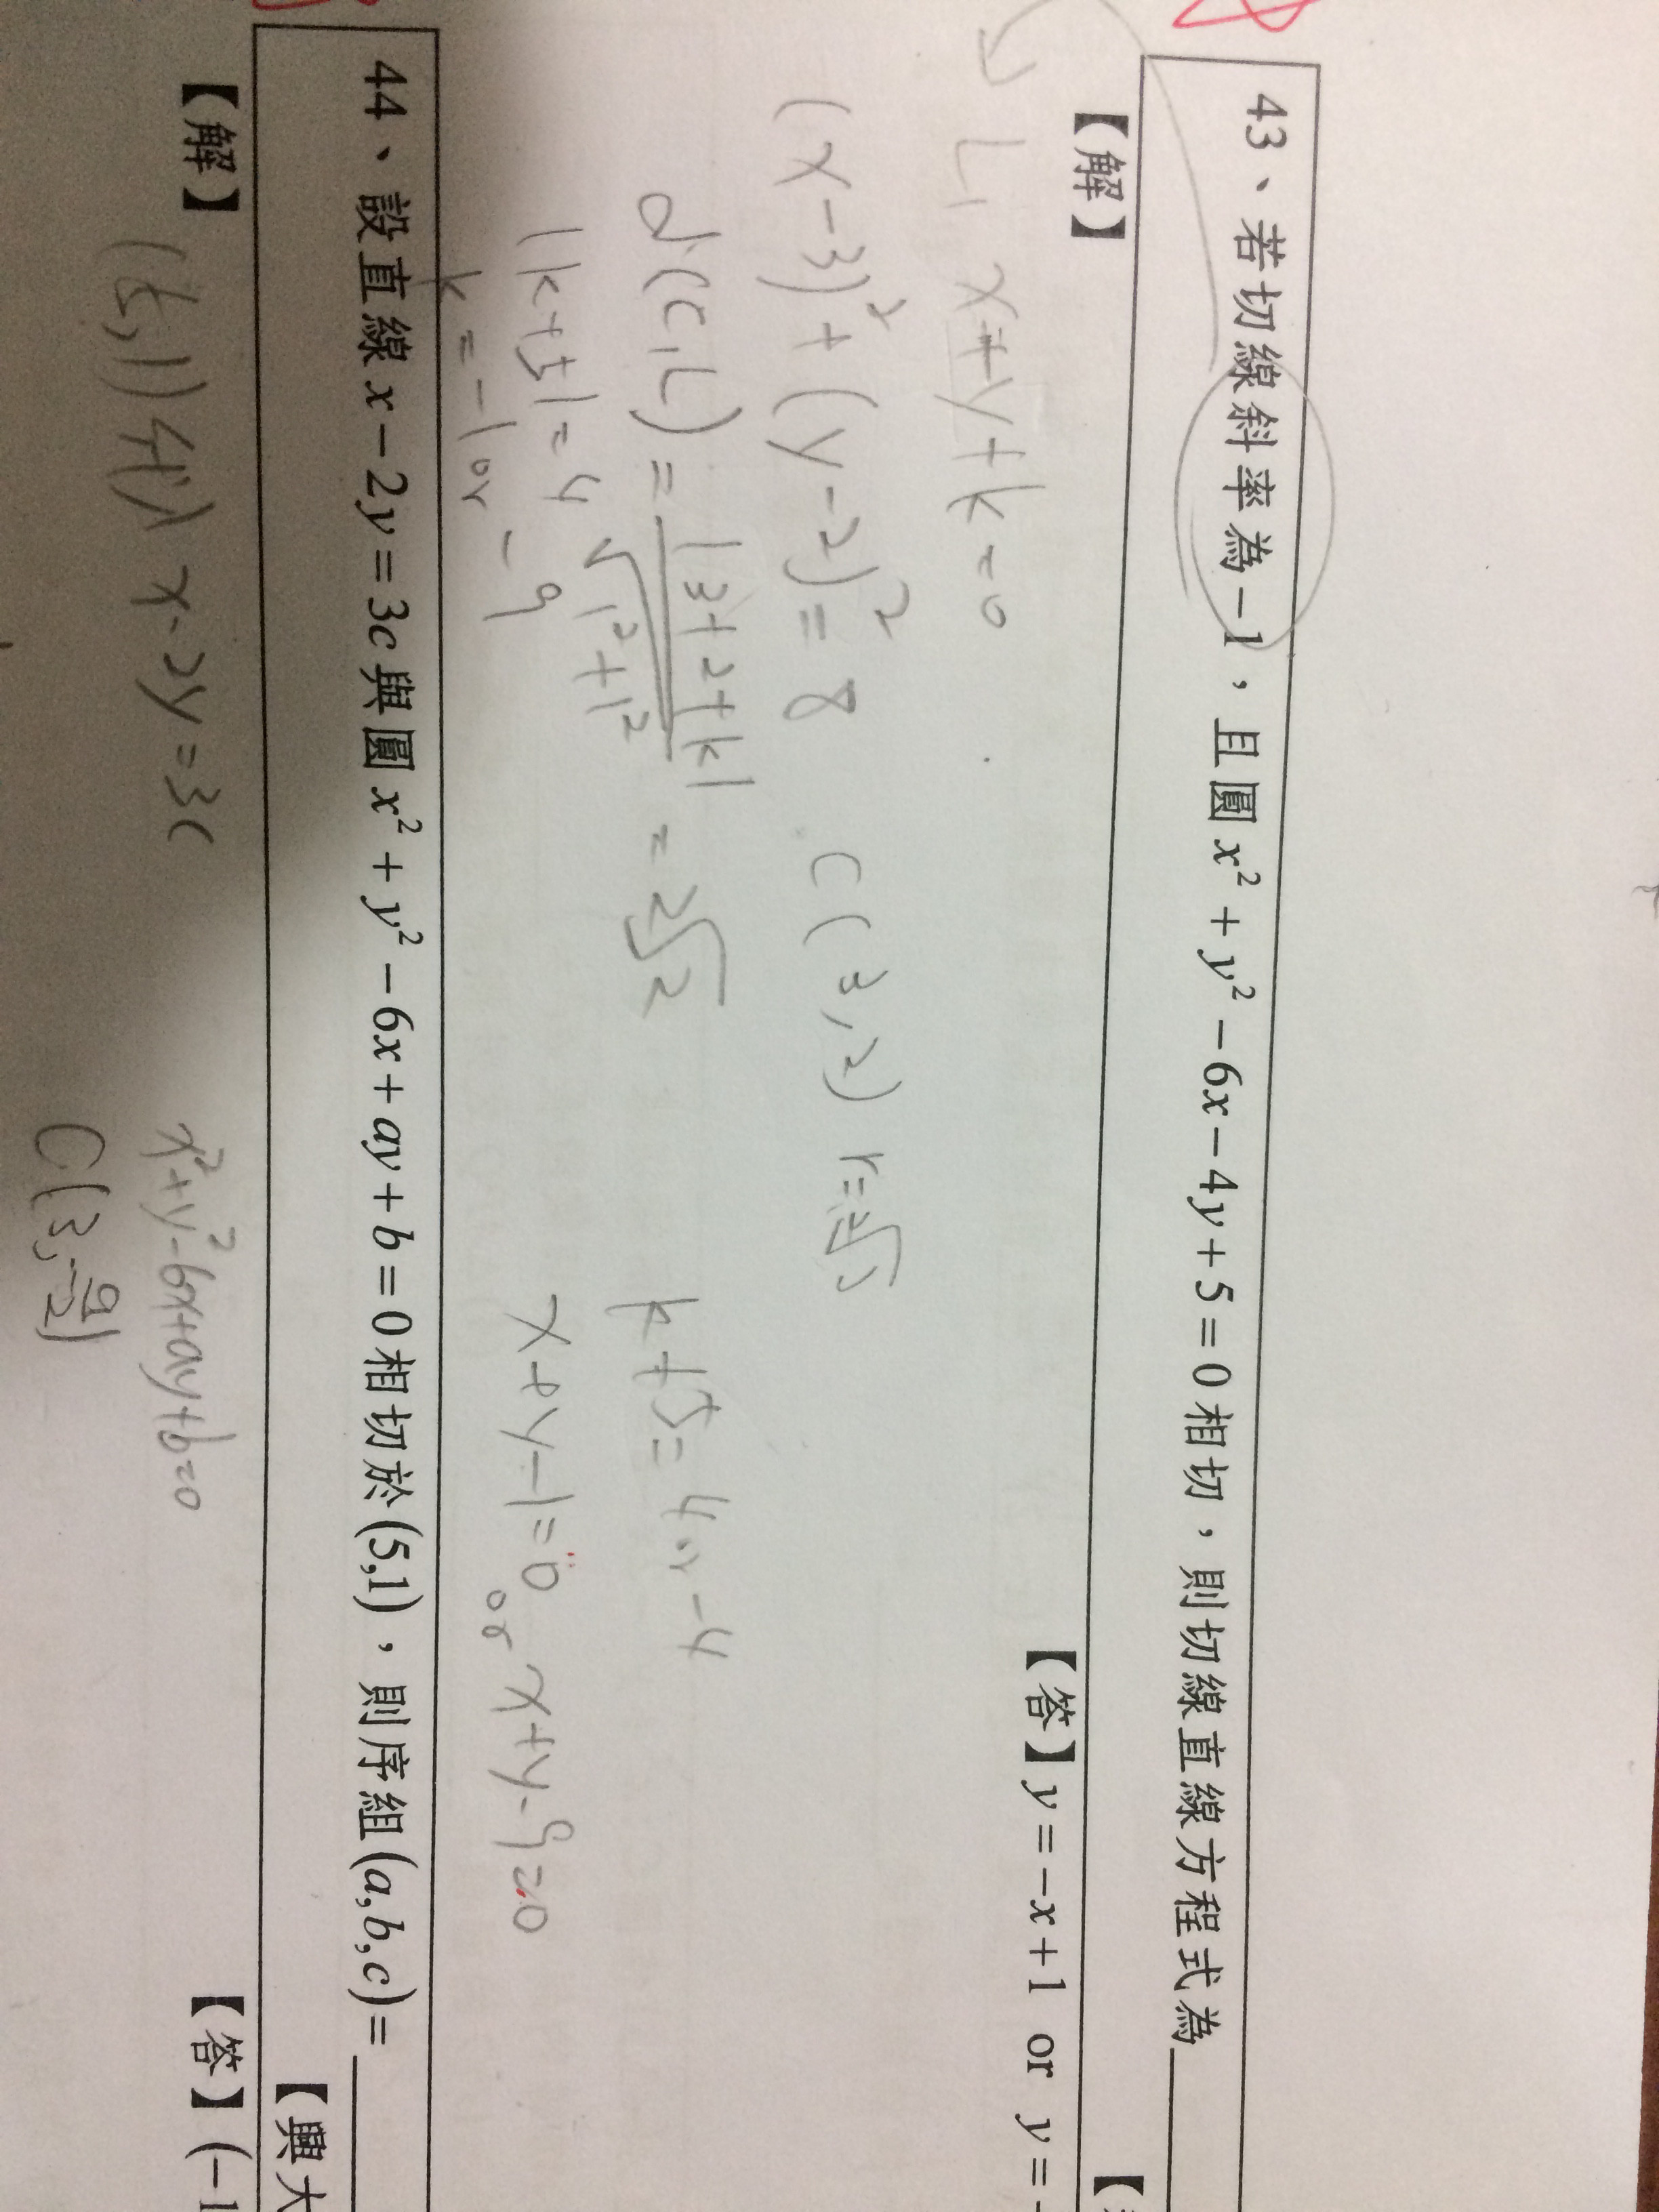 43、若切線斜率為-1，且圓x²+y²-6x-4y+5=0相切，則切線直線方程式為____
【
【解】
【答】y=-x+1 or y=-
L, x+y+k=0
(x-3)²+(y-2)²=8 C(3,2) r=2√2
d(C,L)=|3+2+k|/√1²+1²=2√2
|k+5|=4 k+5=4 or -4
k=-1 or -9
x+y-1=0 or x+y-9=0
44、設直線x-2y=3c與圓x²+y²-6x+ay+b=0相切於(5,1)，則序組(a,b,c)=____
【興大
【解】
【答】(-1
(5,1)代入x-2y=3c
x²+y²-6x+ay+b=0
C(3,-a/2)